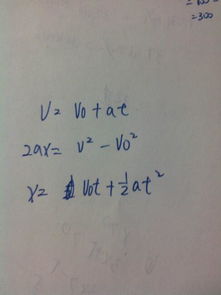 =300
V = V0 + at
2ax = v² - V0²
x = V0t + ½at²